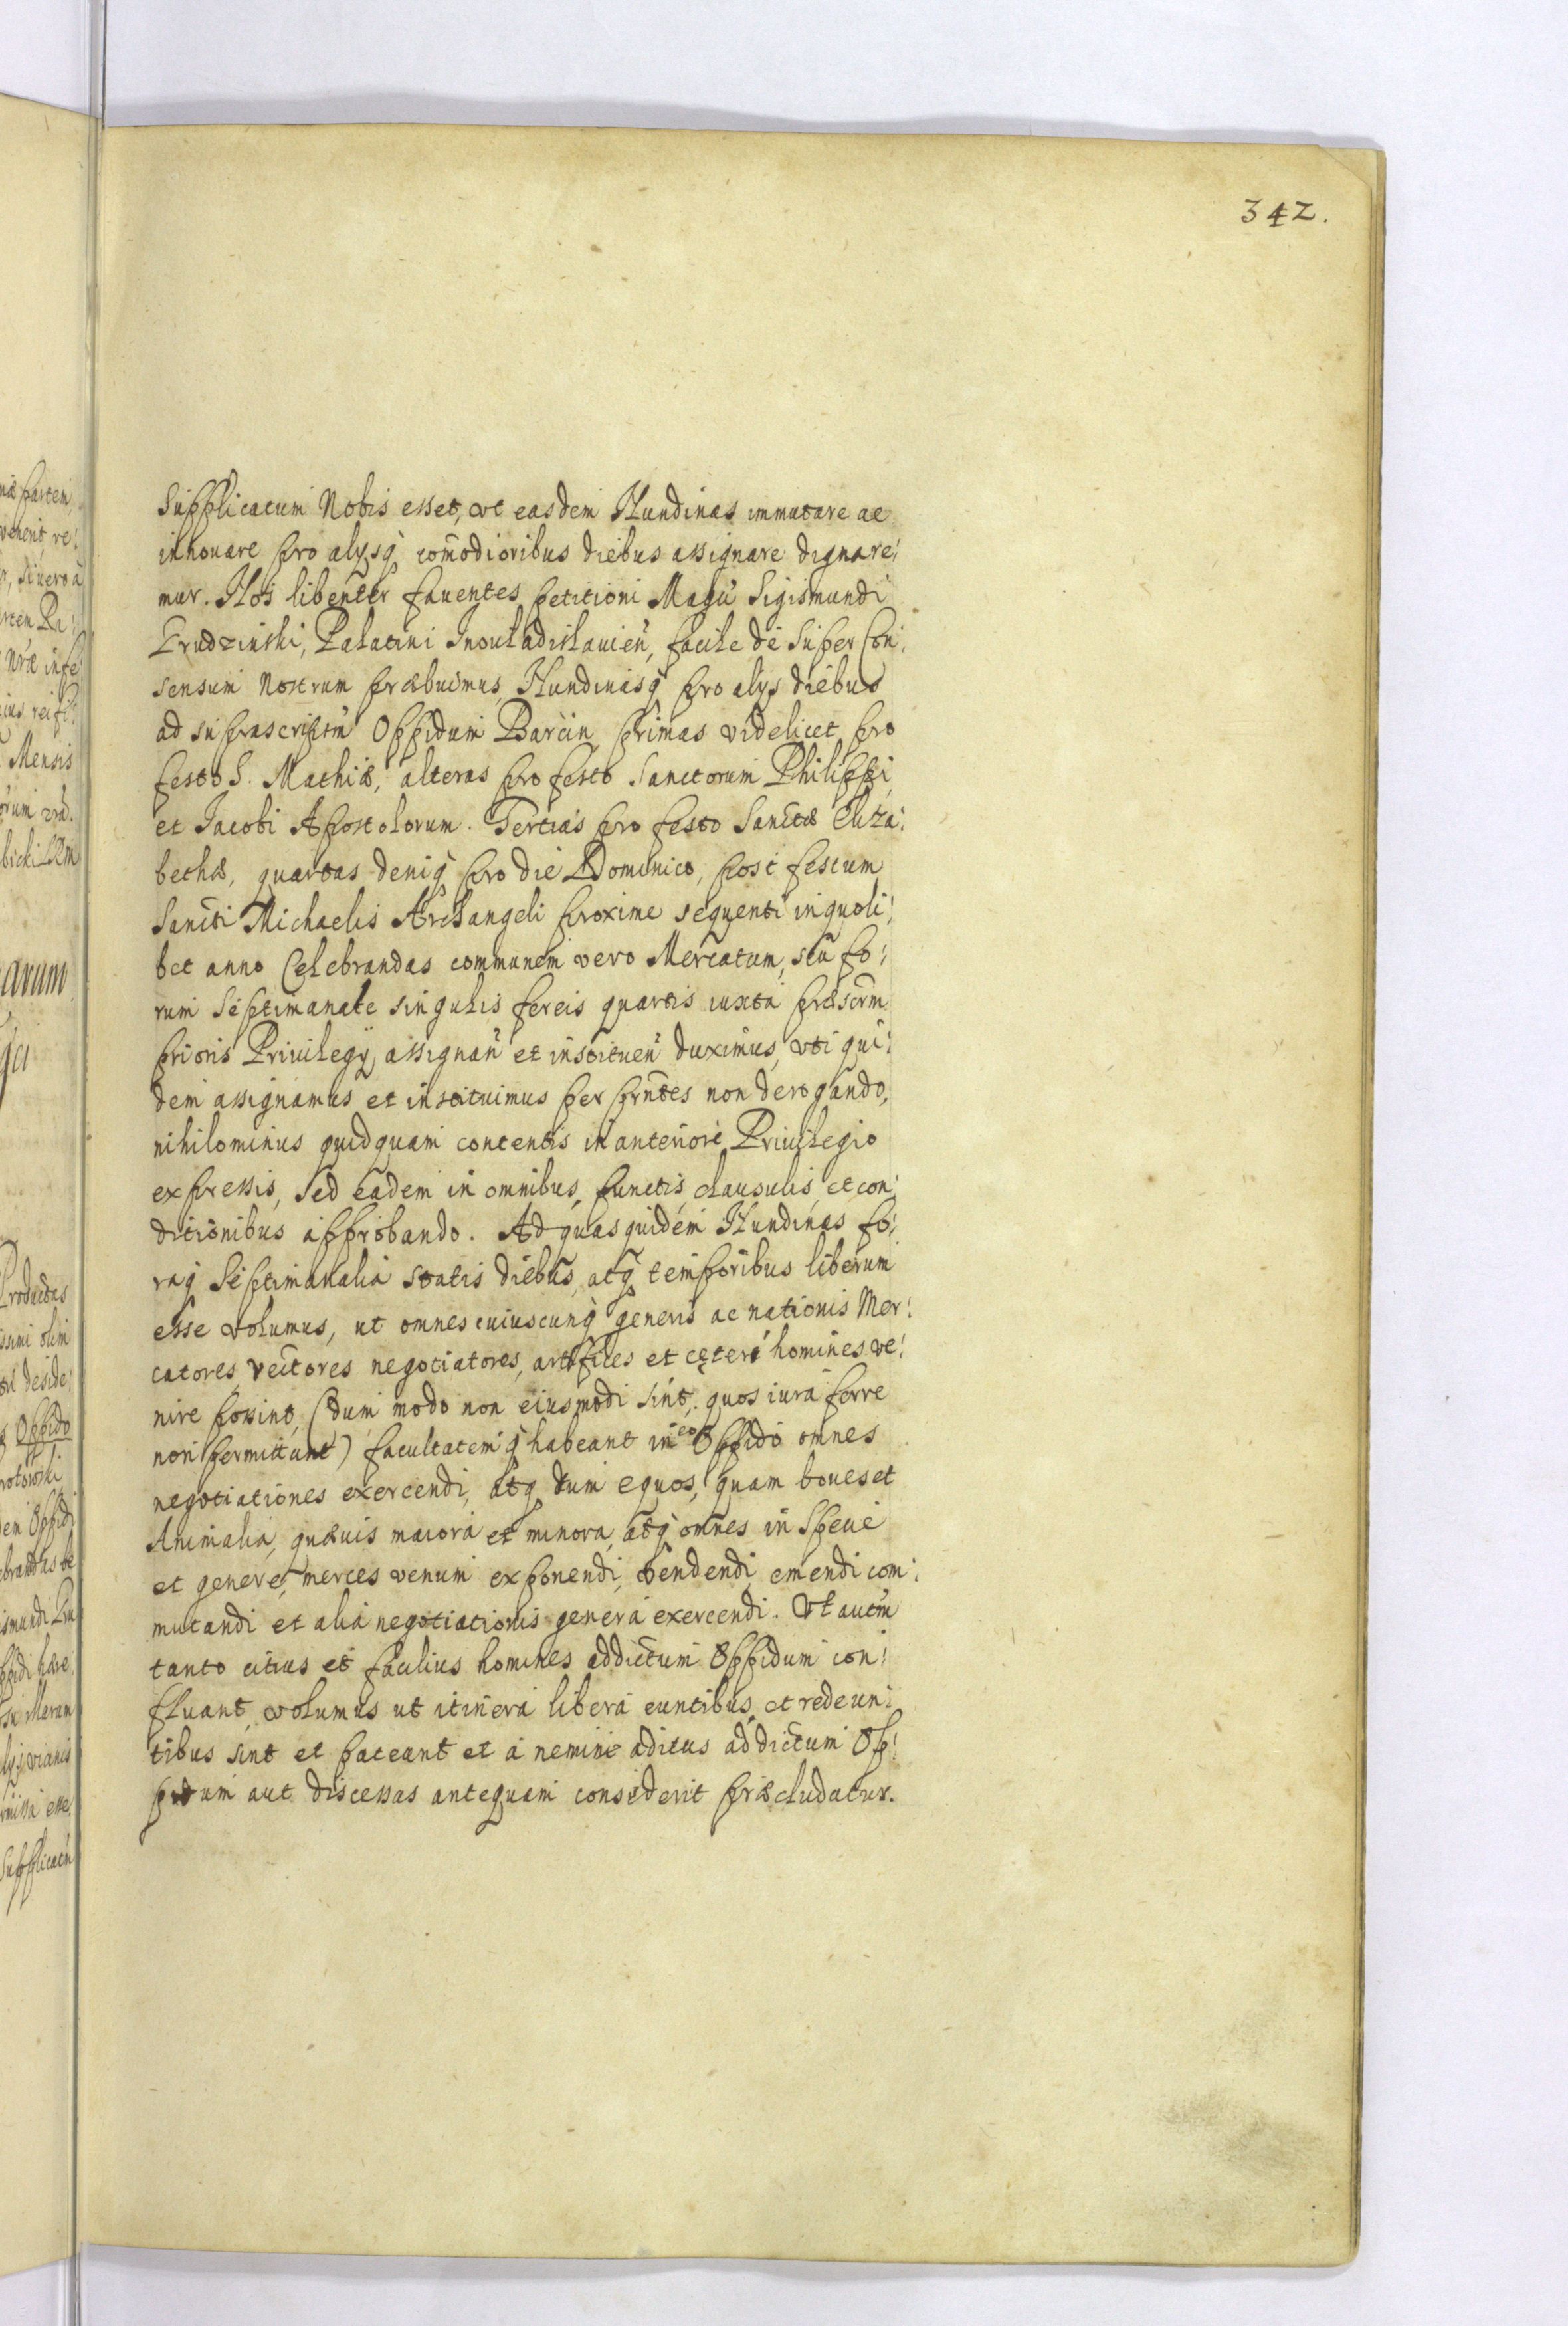 342.
Supplicatum Nobis esset, vt easdem Nundinas immutare ac
innouare pro alysq̀ com̃odioribus diebus assignare dignare:
mur. Nos libenter fauentes petitioni Magci Sigismundi
Grudzinski, Palatini Inouladislauien̄, facile de super Con:
sensum Nostrum præbuimus, Nundinasq̀ pro alys diebus
ad suprascriptm̄ Oppidum Barcin primas videlicet pro
festo S. Mathiæ, alteras pro festo Sanctorum Philippi
et Jacobi Apostolorum. Tertias pro festo Sanctæ Eliza:
bethæ, quartas deniq̀ pro die Dominico, post festum
Sancti Michaelis Archangeli proxime sequenti in quoli:
bet anno Celebrandas communem vero Mercatum, seu fo:
rum Septimanale singulis fereis quartis iuxta præscrm̄
prioris Priuilegÿ assignan̄ et instituen̄ duximus, vti qui:
dem assignamus et instituimus per prn̄tes non derogando,
nihilominus quidquam contentis in anteriore Priuilegio
expressis, sed eadem in omnibus, punctis, clausulis, et con:
ditionibus approbando. Ad quas quidem Nundinas fo:
raq̀ Septimanalia statis diebus, atq̀ temporibus liberum
esse volumus, ut omnes cuiuscunq̀ generis ac nationis Mer:
catores vectores negotiatores, artifices et cęteri homines ve:
nire possint, (dum modo non eiusmodi sint, quos iura ferre
non permittunt) facultatemq̀ habeant in eo Oppido omnes
negotiationes exercendi, atq̀ tum equos, quam boues et
Animalia, quæuis maiora et minora, atq̀ omnes in specie
et genere, merces venum exponendi, vendendi, emendi com:
mutandi et alia negotiationis genera exercendi. Vt autm̄
tanto citius et facilius homines addictum Oppidum con:
fluant, volumus ut itinera libera euntibus, et redeun:
tibus sint et pateant et a nemine aditus addictum Op:
pidum aut discessas antequam considerit præcludatur.